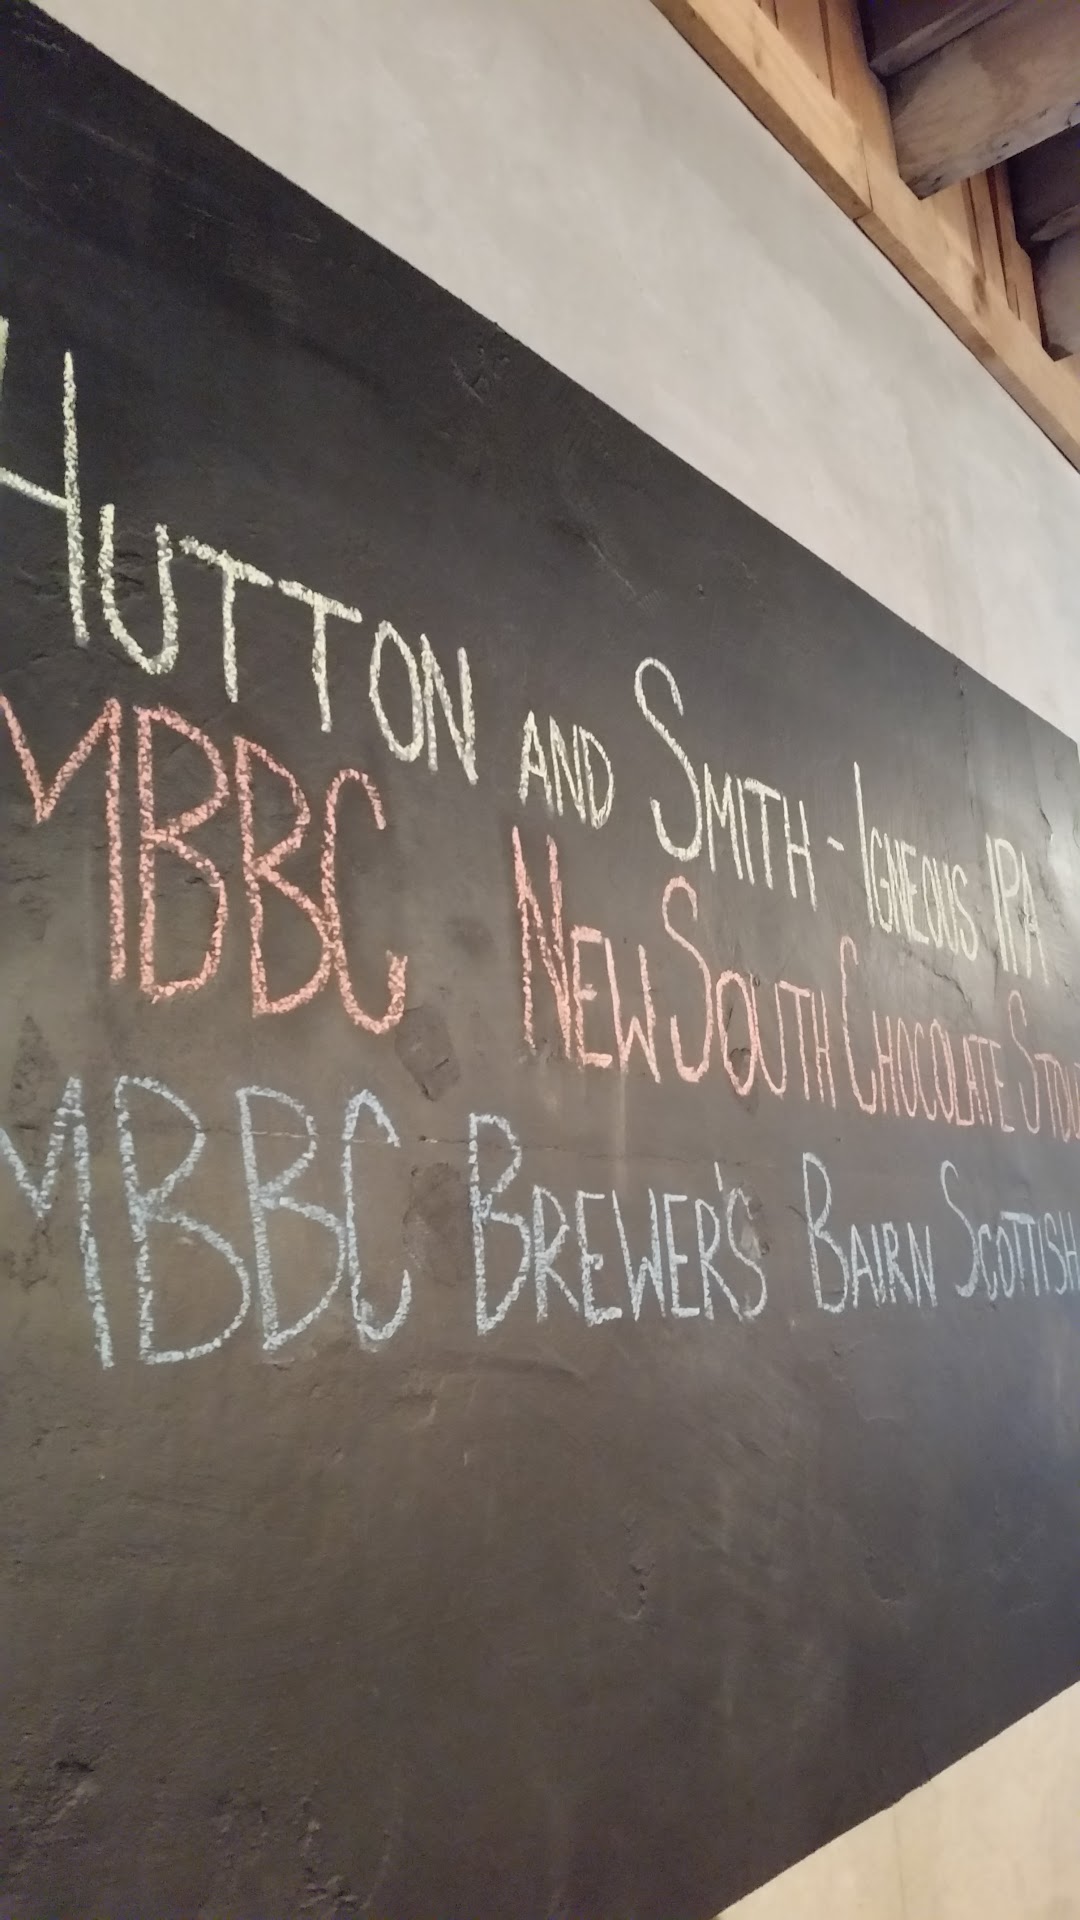 HUTTON AND SMITH - IGNEOUS IPA
MBBC NEW SOUTH CHOCOLATE STOU
MBBC BREWER'S BAIRN SCOTTISH